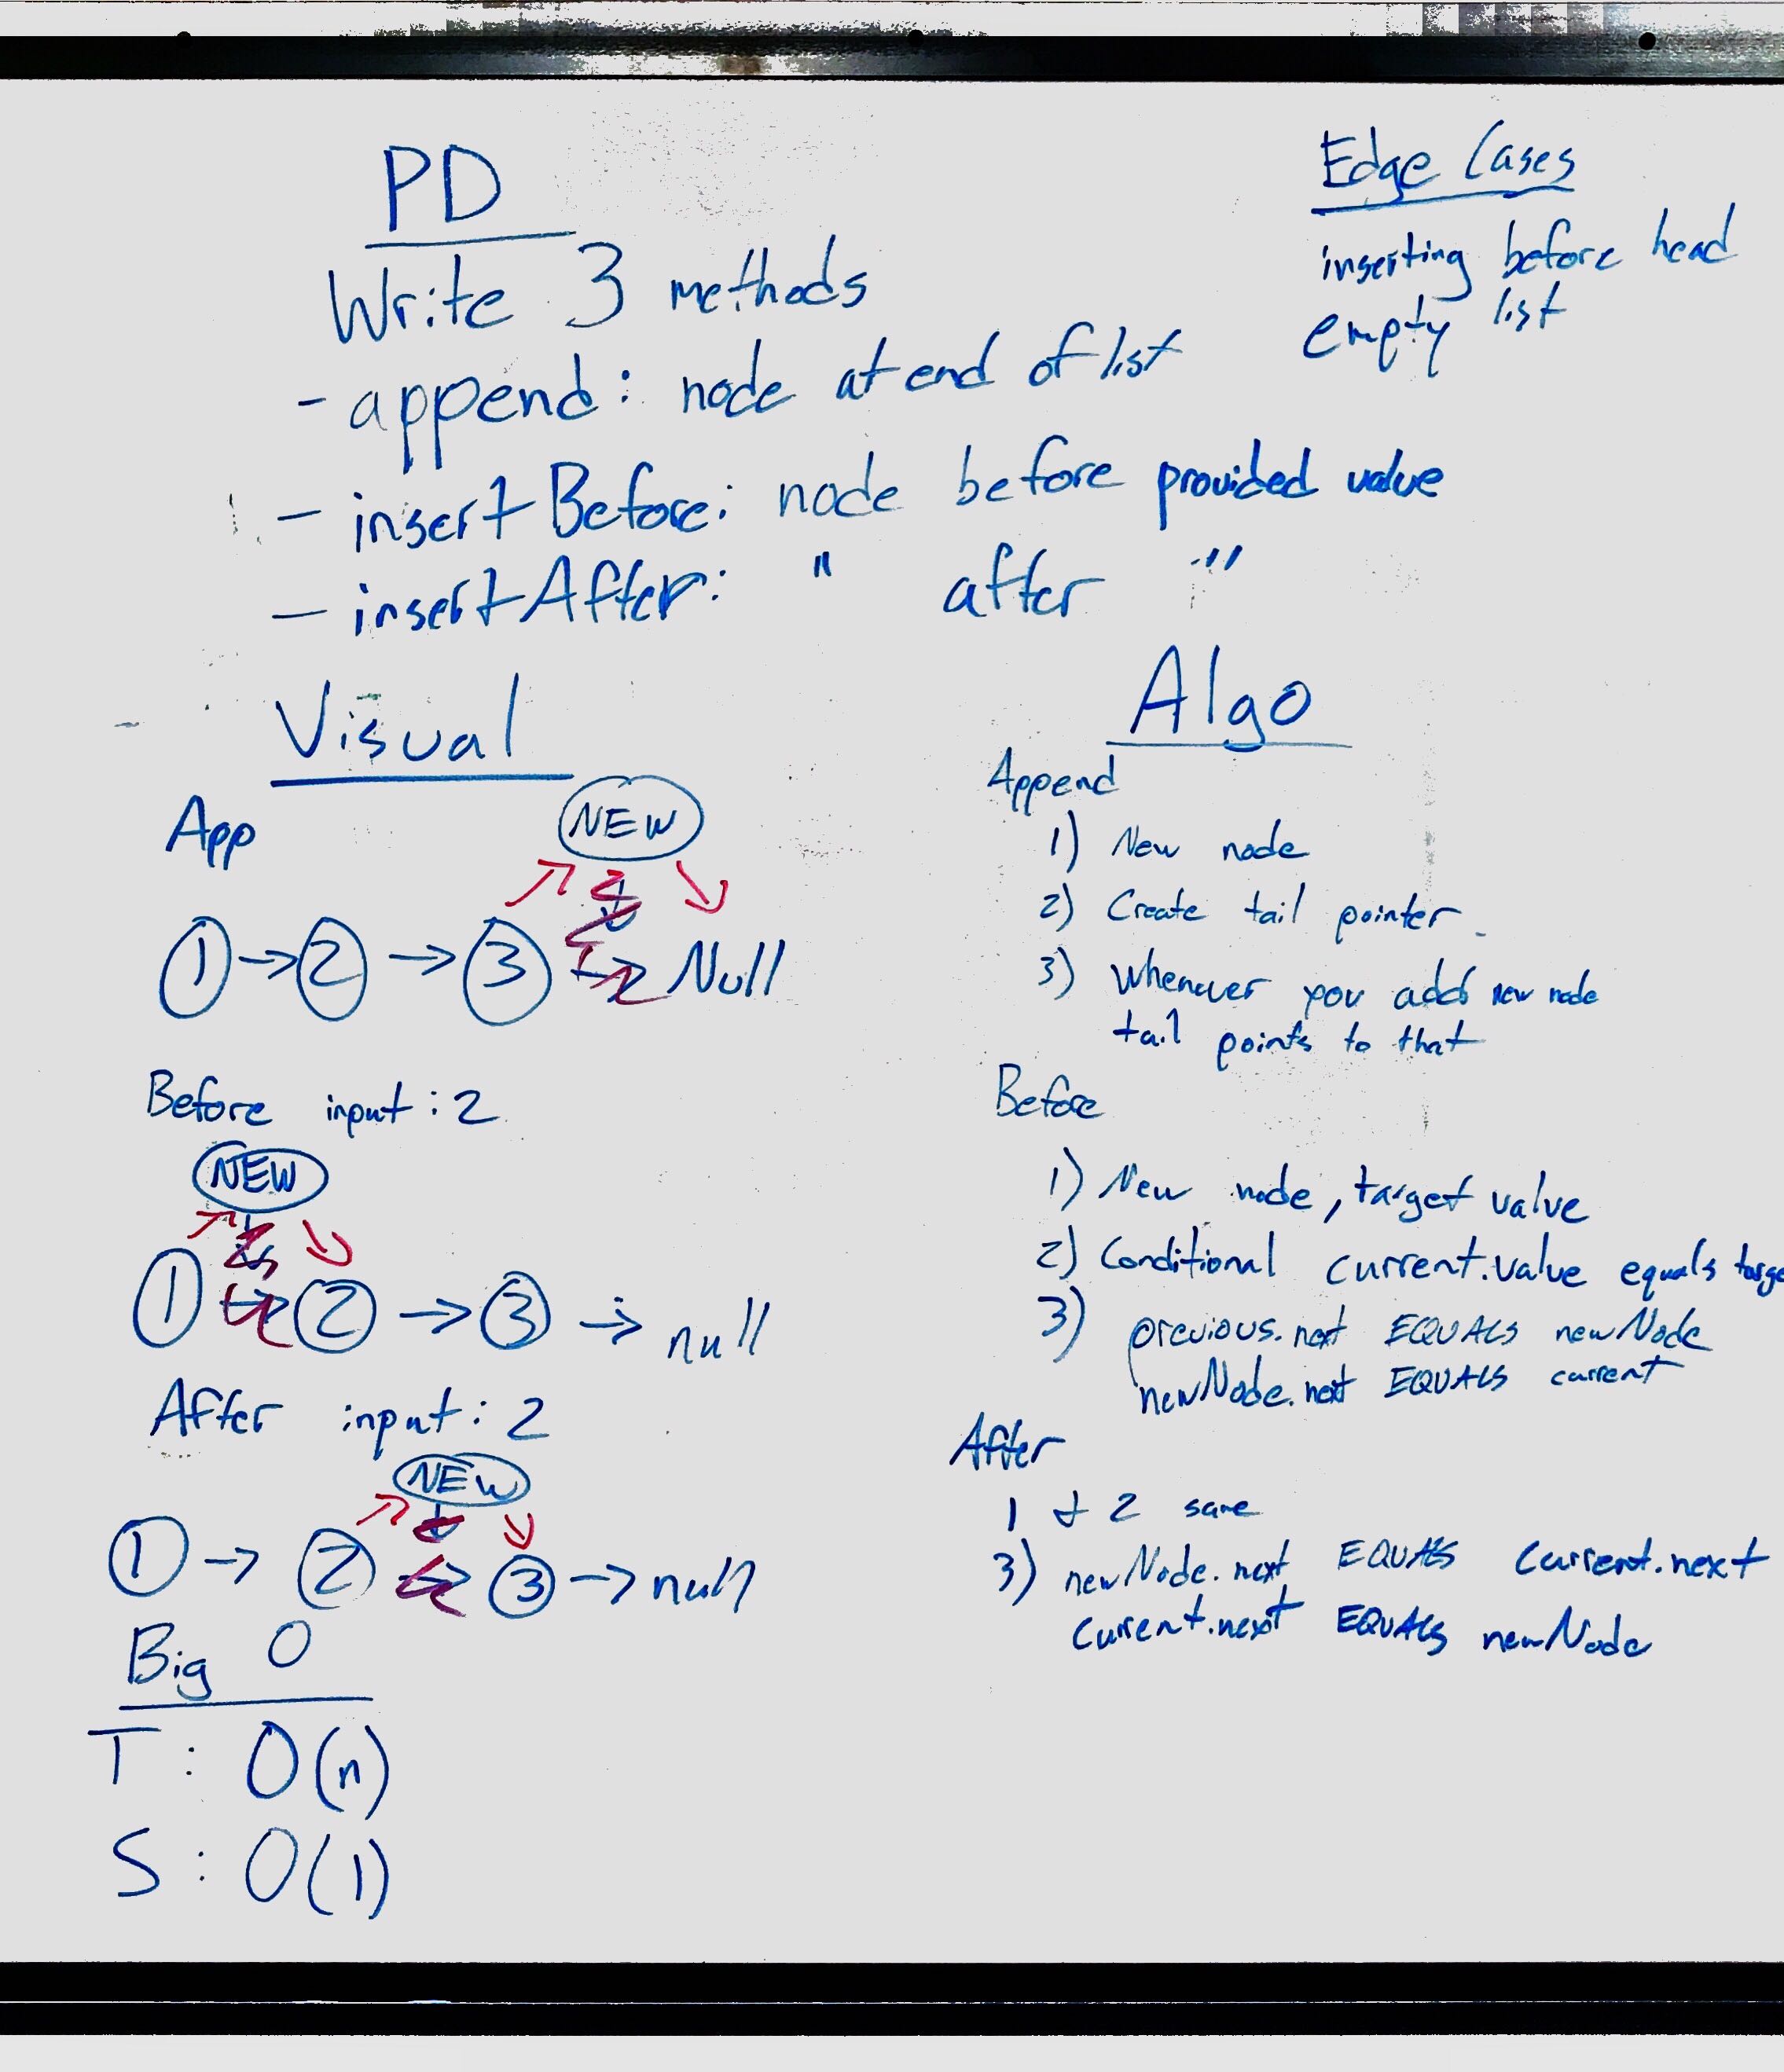 PD
Write 3 methods
- append: node at end of list
- insertBefore: node before provided value
- insertAfter: " after "
Edge Cases
inserting before head
empty list
Visual
App
NEW
1 → 2 → 3 → Null
Before input: 2
NEW
1 → 2 → 3 → null
After input: 2
NEW
1 → 2 → 3 → null
Big O
T: O(n)
S: O(1)
Algo
Append
1) New node
2) Create tail pointer
3) Whenever you add new node
tail points to that
Before
1) New node, target value
2) Conditional current.value equals targe
3) previous.next EQUALS newNode
newNode.next EQUALS current
After
1 + 2 same
3) newNode.next EQUALS current.next
current.next EQUALS newNode